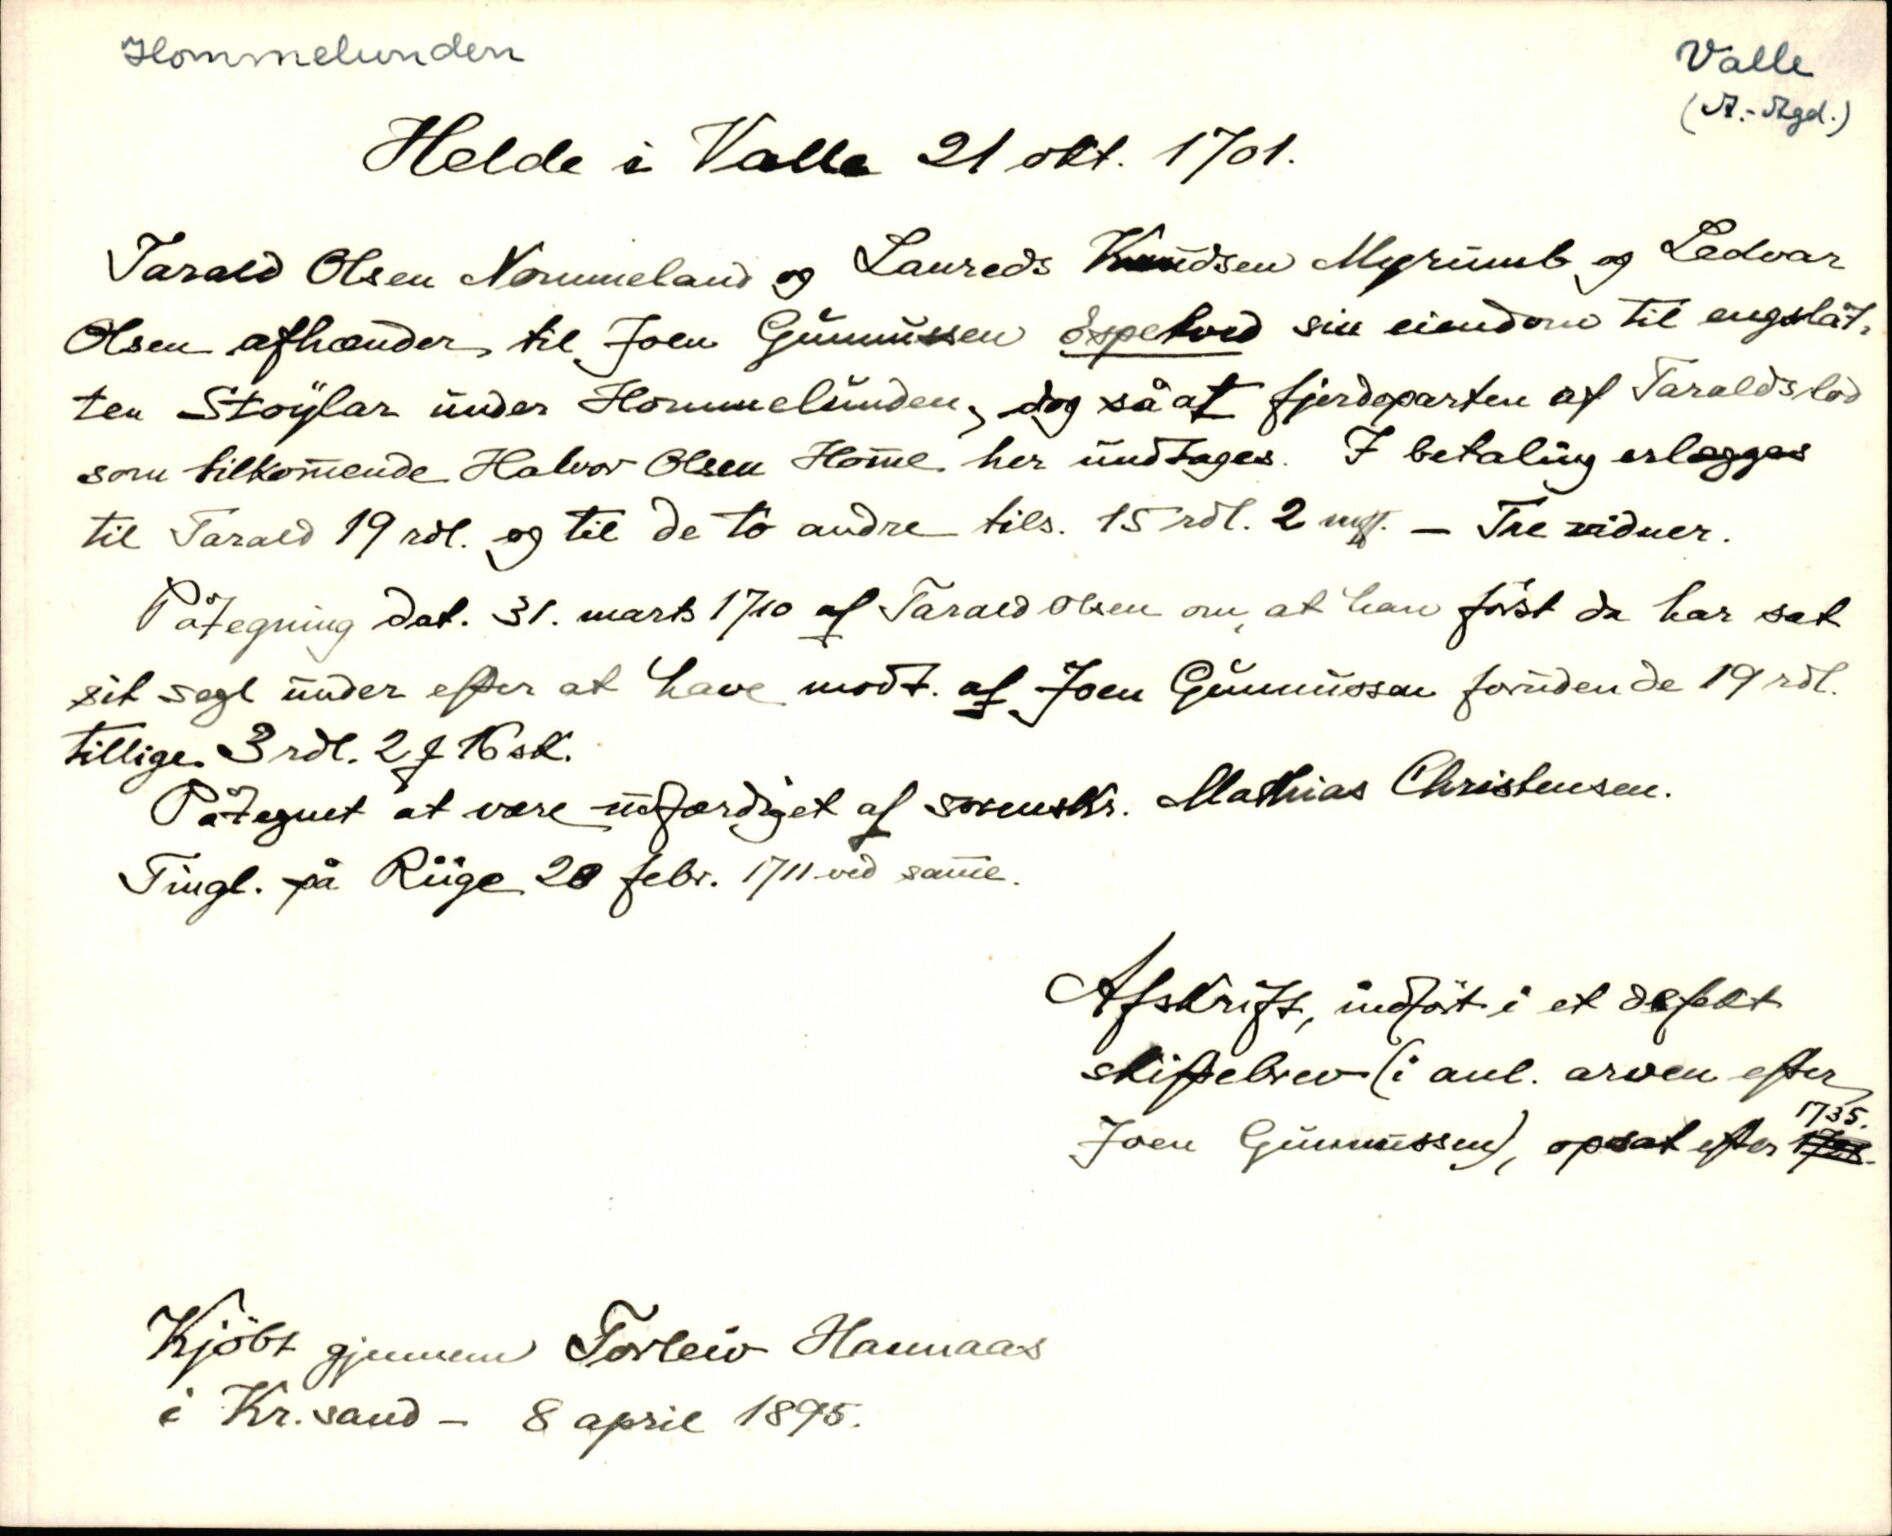 Hommelunden
Valle
(A.-Agd.)
Helde i Valle 21 okt. 1701.
Tarald Olsen Nommeland og Laureds Knudsen Myrumb og Ledvar
Olsen afhænder til Joen Gunnussen Espetved sin eiendom til engslåt-
ten Stoÿlar under Hommelunden, dog så at fjerdeparten af Taralds lod
som tilkom̅ende Halvor Olsen Hom̅e her undtages. I betaling erlægges
til Tarald 19 rdl. og til de to andre tils. 15 rdl. 2 mk. — Tre vidner.
Påtegning dat. 31. marts 1710 af Tarald Olsen om, at han först da har sat
sit segl under efter at have modt. af Joen Gunnussen foruden de 19 rdl.
tillige 3 rdl. 2 ƒ 16 sk.
Påtegnet at være udfærdiget af sorenskr. Mathias Christensen.
Tingl. på Riige 28 febr. 1711 ved sam̅e.
Afskrift, indfört i et defekt
skiftebrev (i anl. arven efter
Joen Gunnussen), opsat efter 1735.
Kjöbt gjennem Torleiv Hannaas
i Kr.sand — 8 april 1895.